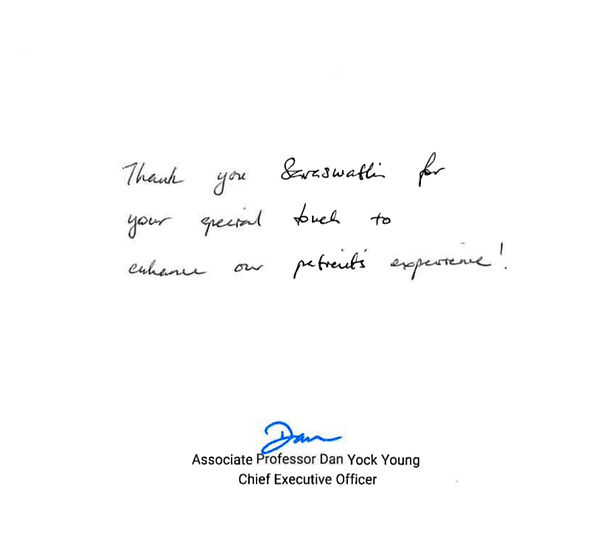 Thank you Saraswathi for
your special touch to
enhance our patient's experience!
Dan
Associate Professor Dan Yock Young
Chief Executive Officer